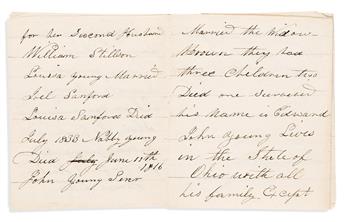 for her Second Husband
William Stillson
Louisa Young Married
Joel Sanford
Louisa Sanford Died
July 1833 Nabby Young
Died July June 11th
1816
John Young Senr
Married the widow
Brown they had
three Children two
Died one survived
his Name is Edward
John Young Lives
in the State of
Ohio with all
his family Except